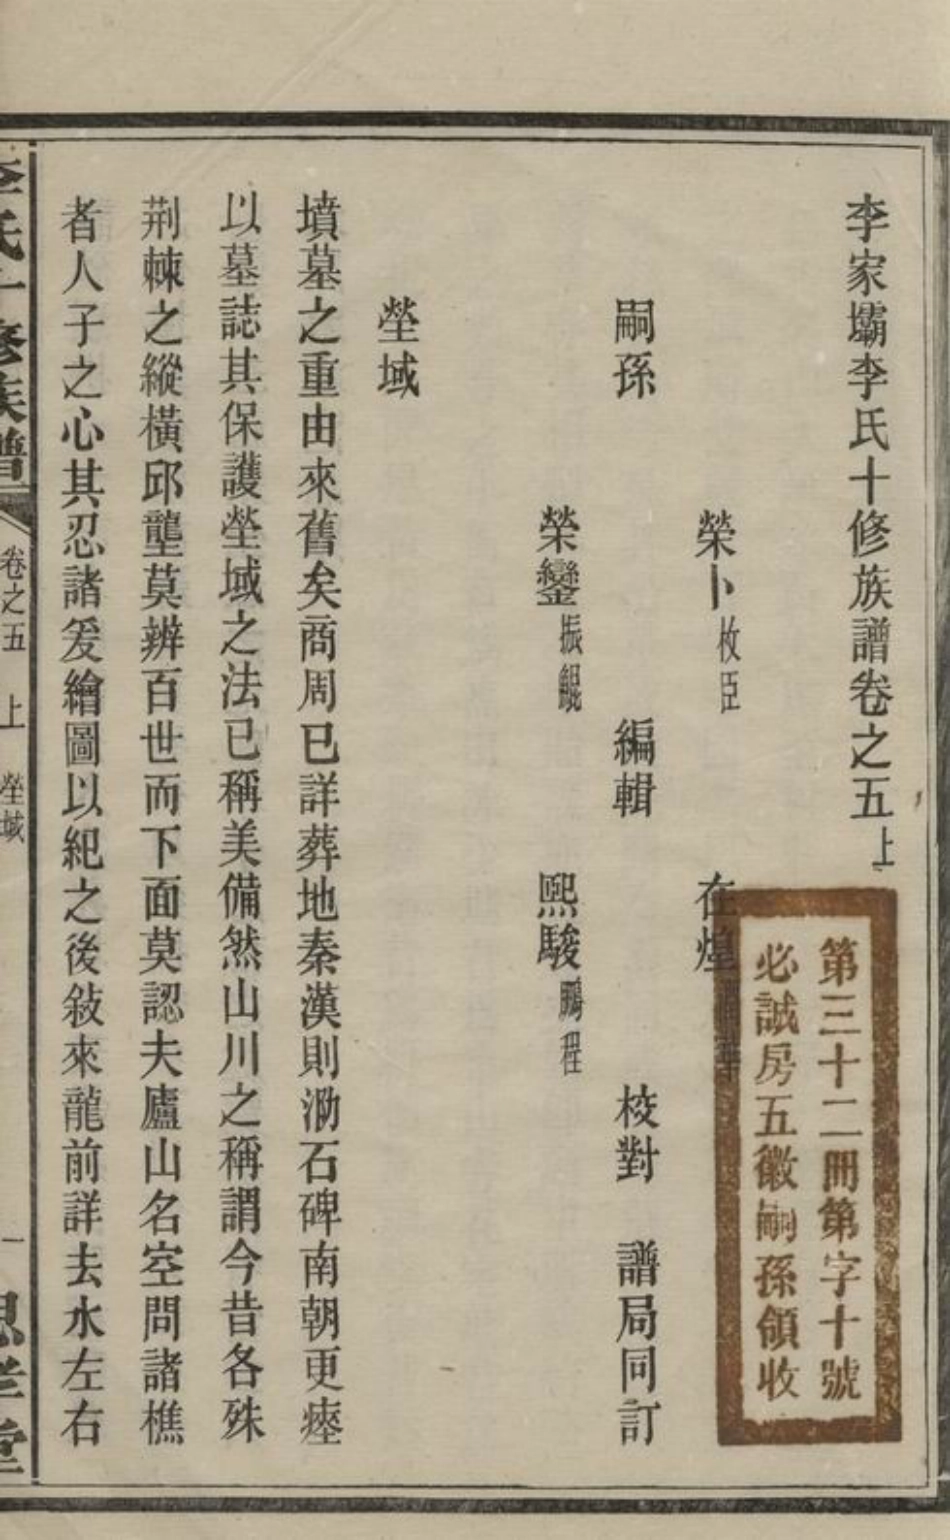 李家壩李氏十修族譜卷之五上
第三十二冊第字十號
必誠房五徽嗣孫領收
榮卜枚臣 在煌
嗣孫 編輯 校對 譜局同訂
榮鑾振鯤 熙駿鵬程
塋域
墳墓之重由來舊矣商周已詳葬地秦漢則泐石碑南朝更瘞
以墓誌其保護塋域之法已稱美備然山川之稱謂今昔各殊
荆棘之縱橫邱壟莫辨百世而下面莫認夫廬山名空問諸樵
者人子之心其忍諸爰繪圖以紀之後敍來龍前詳去水左右
李氏十修族譜 卷之五 上 塋域 一 思孝堂